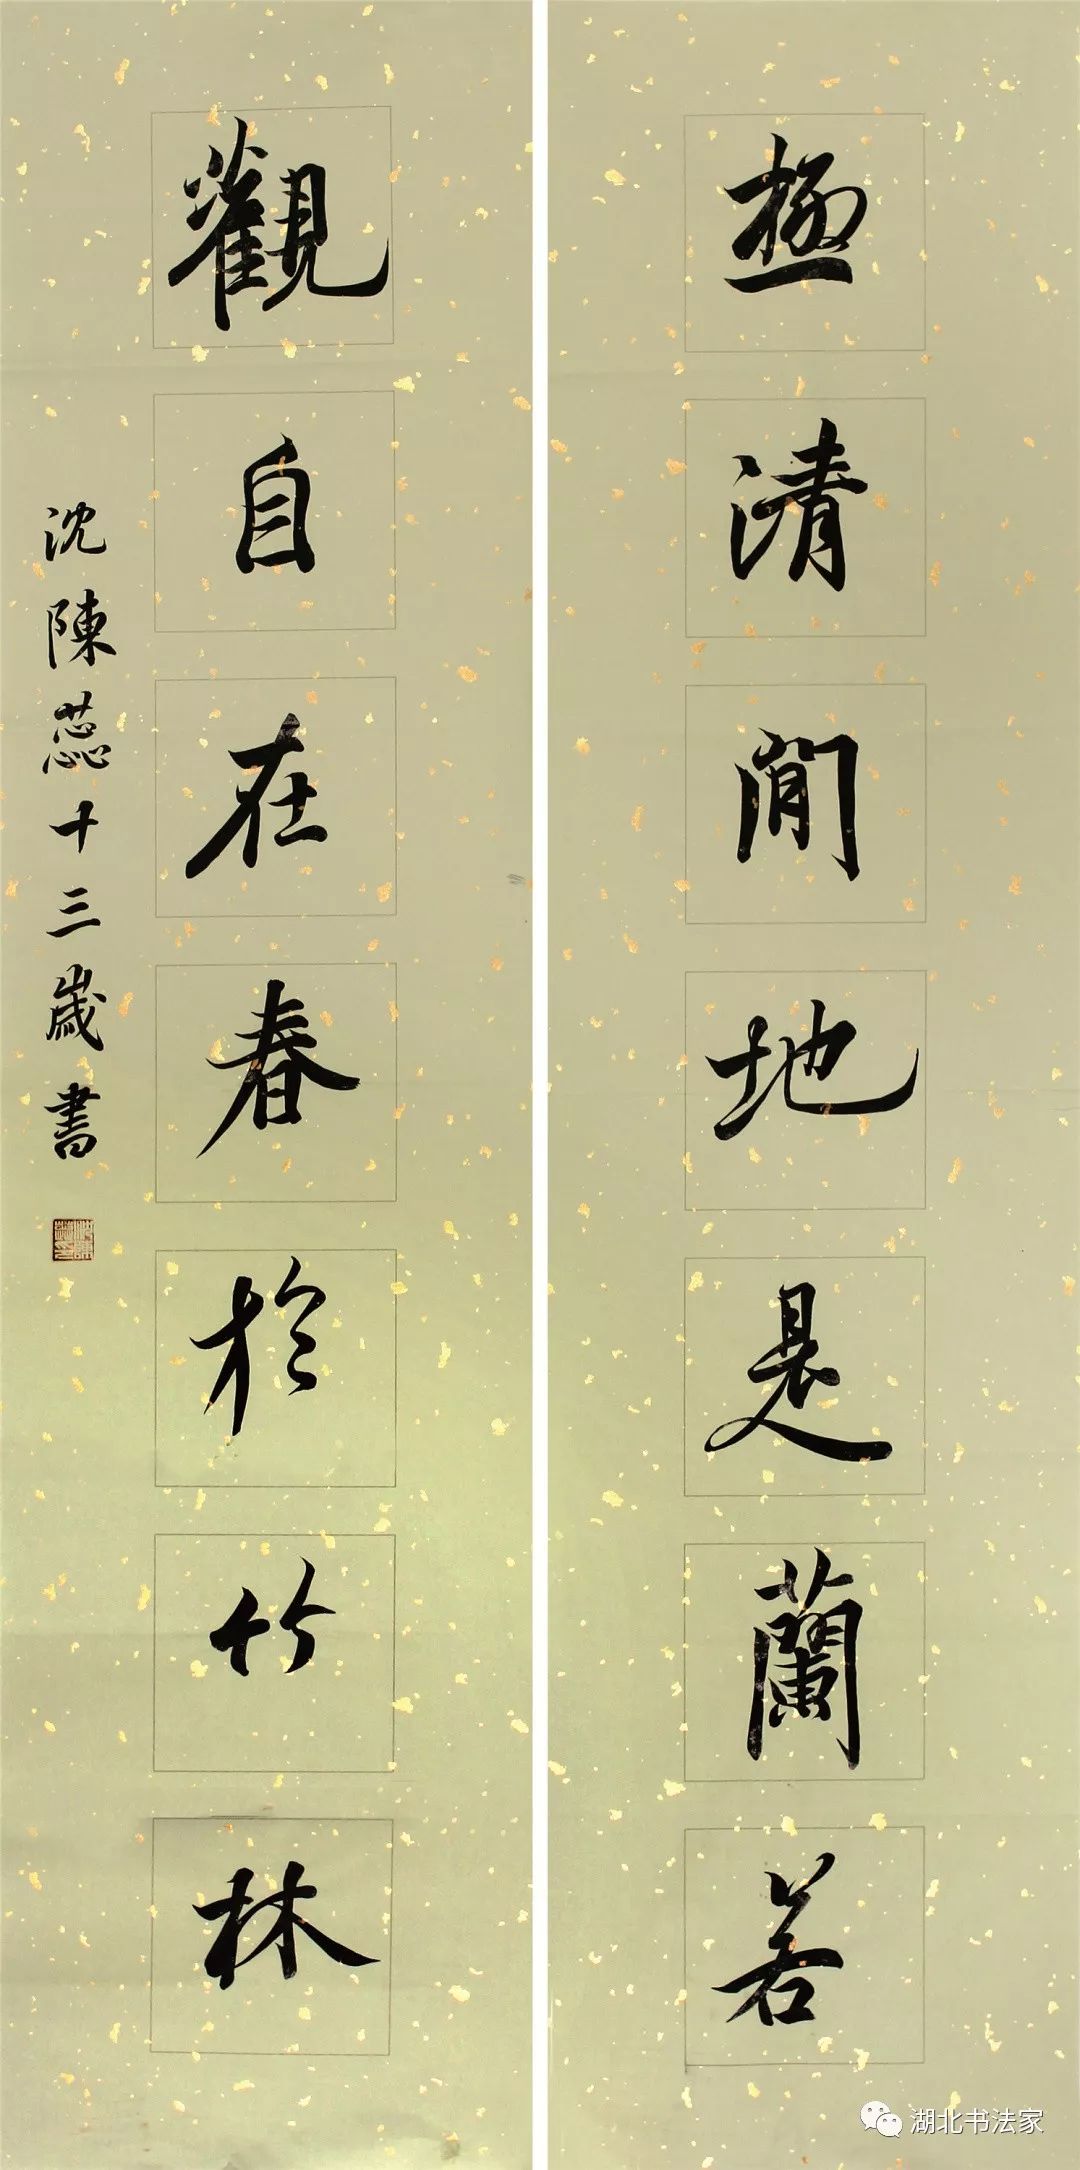 極清閒地是蘭若
觀自在春於竹林
沈陳蕊十三歲書
湖北书法家